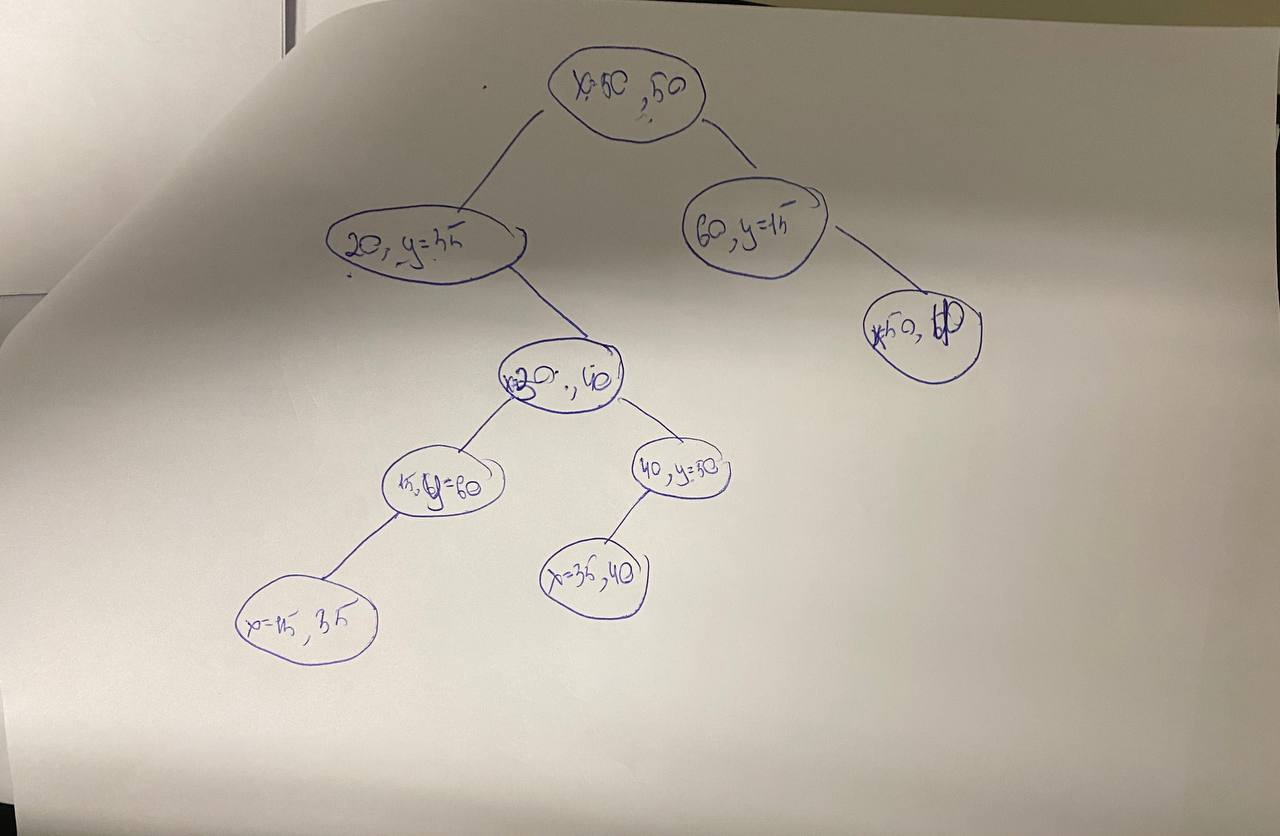 x=50, 50
20, y=35
60, y=15
x=50, 60
x=20, 40
15, y=60
40, y=50
x=35, 40
x=15, 35